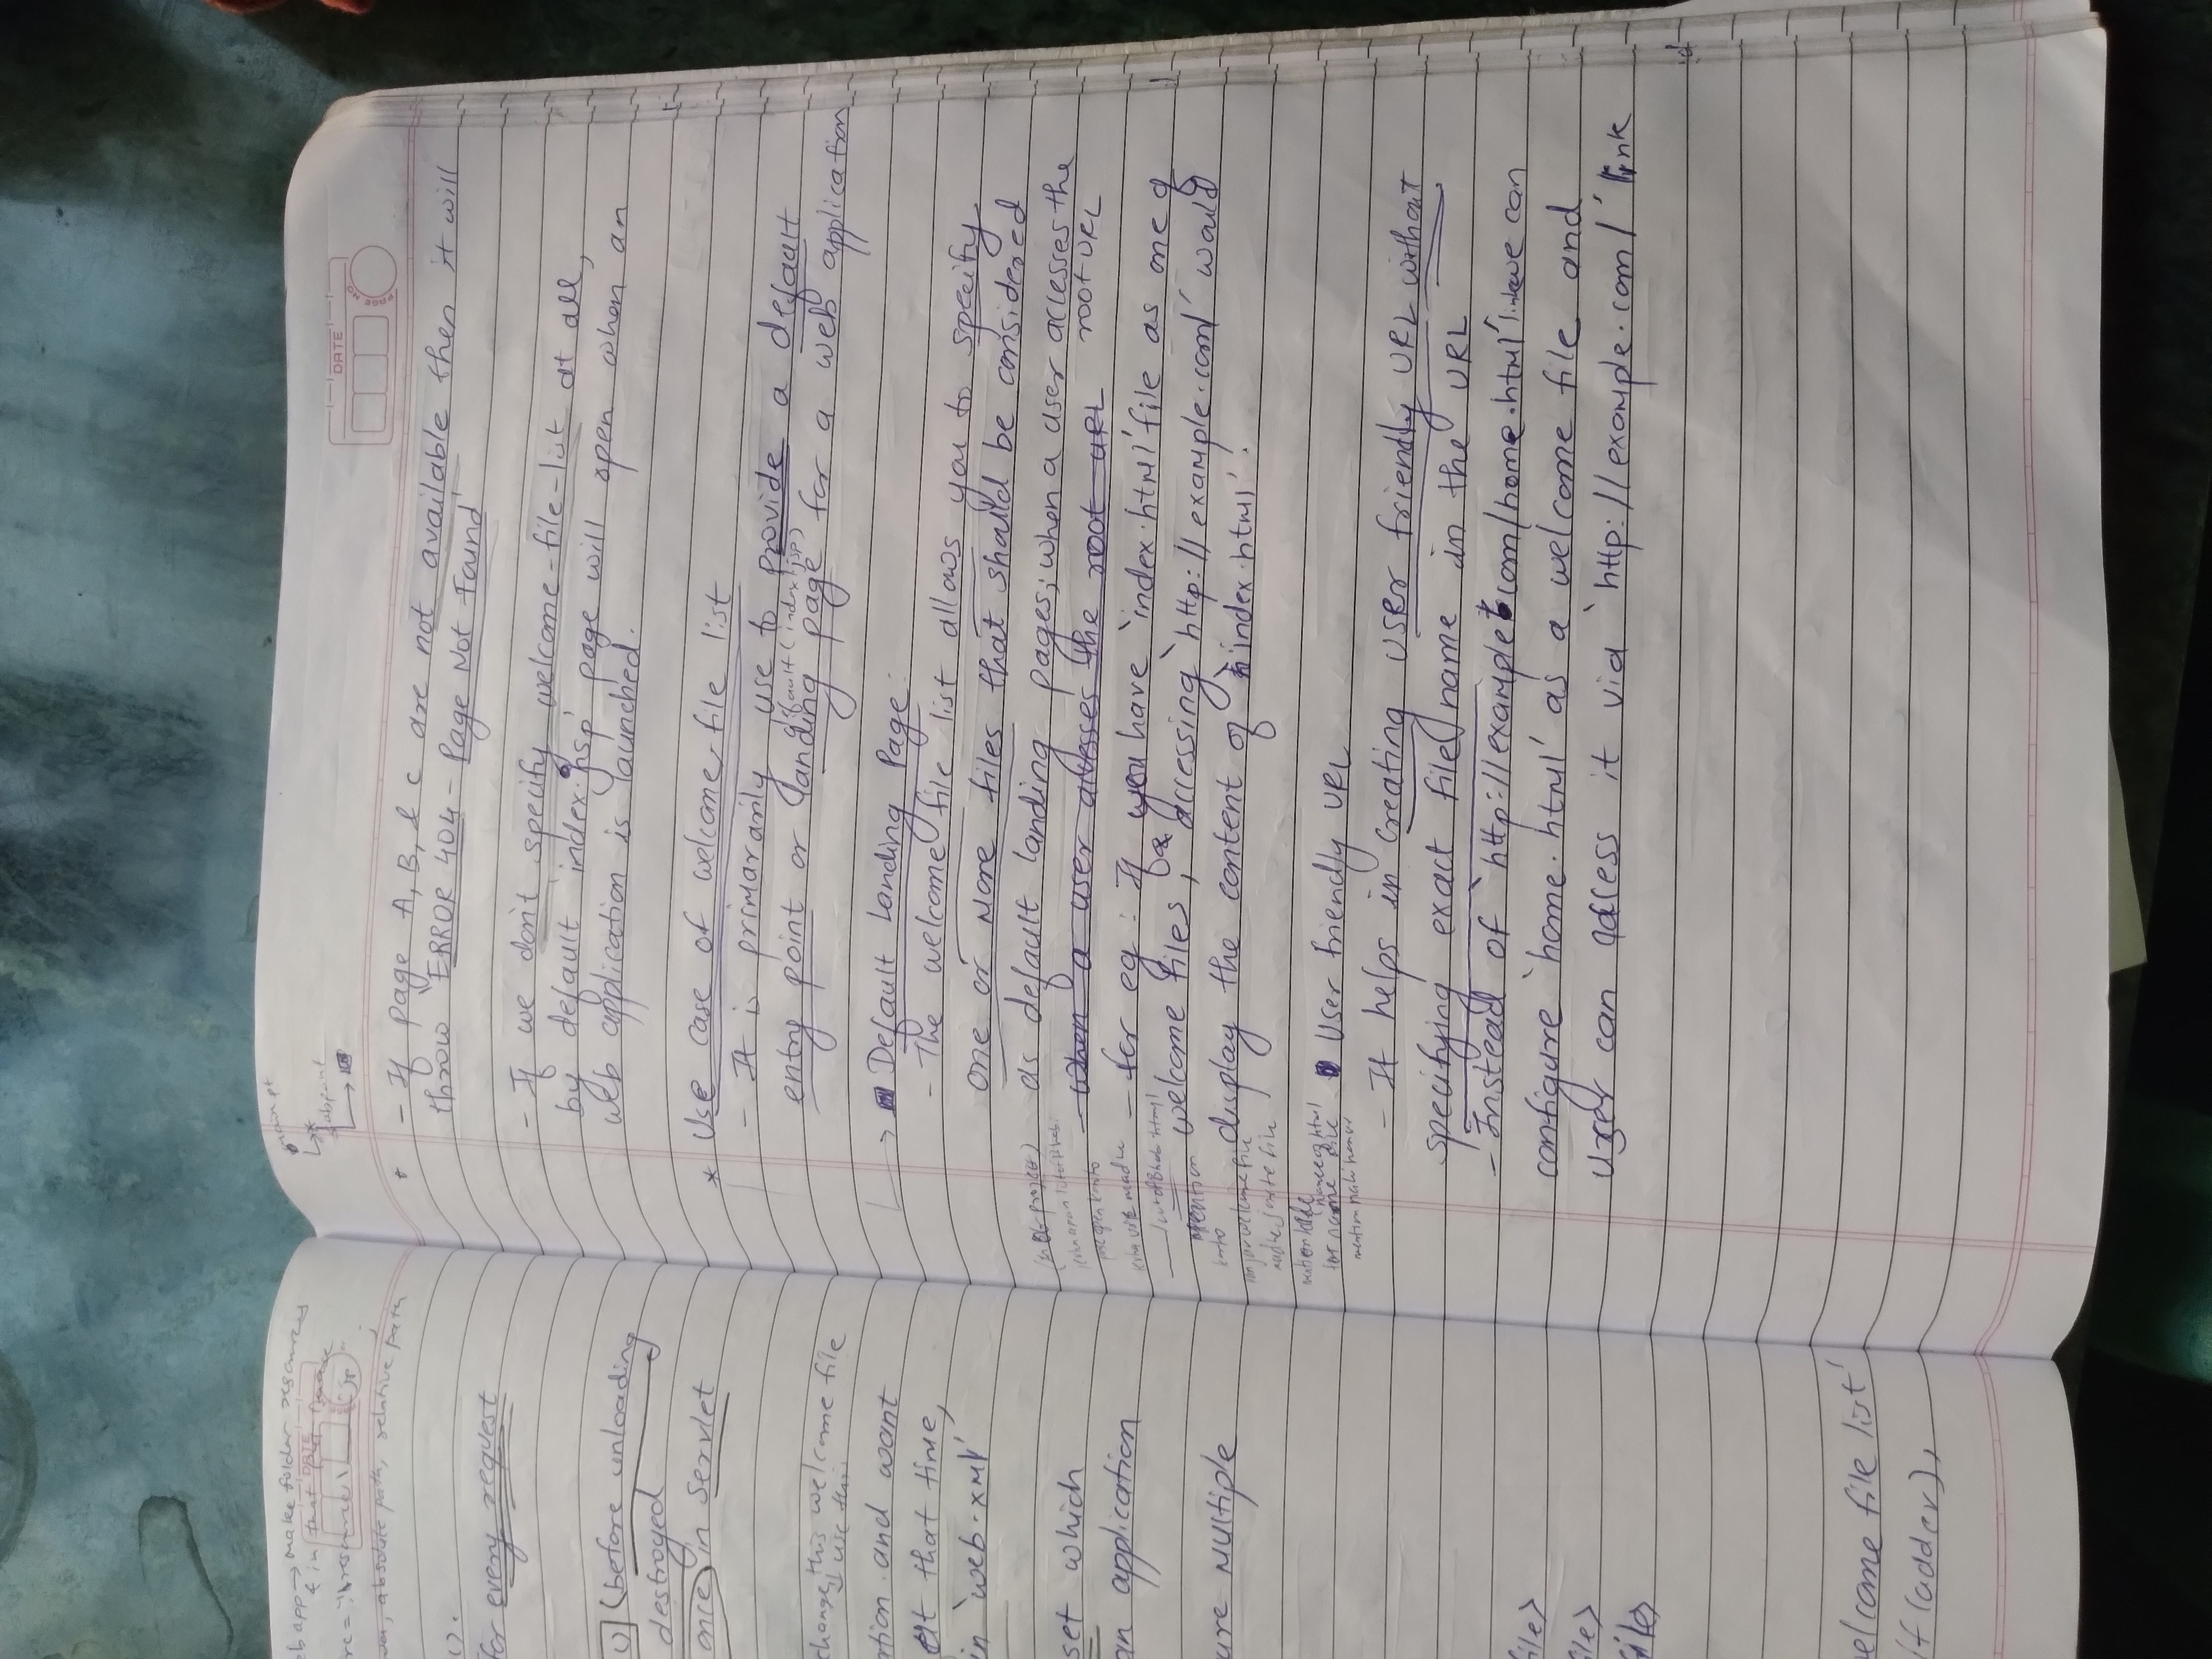 eb app → make folder resources
& in that put
absolute path, relative path
().
for every request
() (before unloading
destroyed
once in Servlet
change this welcome file
↓ use this
ation and want
at that time,
in `web.xml'
set which
an application
ure Multiple
file>
file>
file>
elcome file list'
lf (adder),
main pt
DATE
PAGE NO
- If page A, B, & C are not available then it will
throw `ERROR 404 - Page Not Found'
- If we don't specify welcome-file-list at all,
by default `index.jsp' page will open when an
web application is launched.
* Use case of welcome file list
- It is primararily use to provide a default
default (index.jsp)
entry point or landing page for a web application
→ Default Landing Page:
- The welcome file list allows you to specify
one or more files that should be considered
as default landing pages; when a user accesses the
when a user accesses the root URL root URL
- for eg : If you have `index.html' file as one of
welcome files, accessing `http://example.com/' would
display the content of `index.html'.
User friendly URL
- It helps in creating user friendly URL without
specifying exact file name in the URL
- Instead of `http://example.com/home.html' link we can
configure `home.html' as a welcome file and
user can access it via `http://example.com/' link